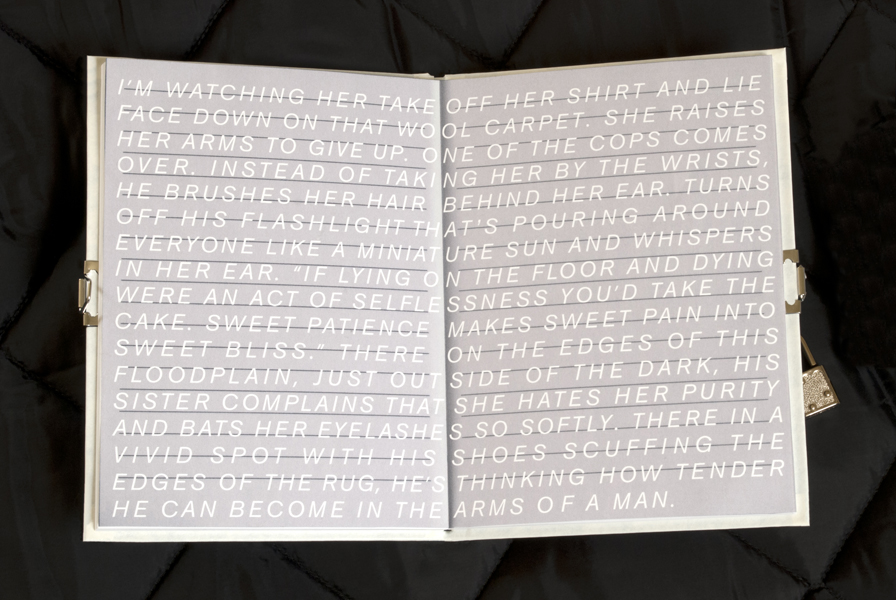 I'M WATCHING HER TAKE OFF HER SHIRT AND LIE
FACE DOWN ON THAT WOOL CARPET. SHE RAISES
HER ARMS TO GIVE UP. ONE OF THE COPS COMES
OVER. INSTEAD OF TAKING HER BY THE WRISTS,
HE BRUSHES HER HAIR BEHIND HER EAR. TURNS
OFF HIS FLASHLIGHT THAT'S POURING AROUND
EVERYONE LIKE A MINIATURE SUN AND WHISPERS
IN HER EAR. "IF LYING ON THE FLOOR AND DYING
WERE AN ACT OF SELFLESSNESS YOU'D TAKE THE
CAKE. SWEET PATIENCE MAKES SWEET PAIN INTO
SWEET BLISS." THERE ON THE EDGES OF THIS
FLOODPLAIN, JUST OUTSIDE OF THE DARK, HIS
SISTER COMPLAINS THAT SHE HATES HER PURITY
AND BATS HER EYELASHES SO SOFTLY. THERE IN A
VIVID SPOT WITH HIS SHOES SCUFFING THE
EDGES OF THE RUG, HE'S THINKING HOW TENDER
HE CAN BECOME IN THE ARMS OF A MAN.